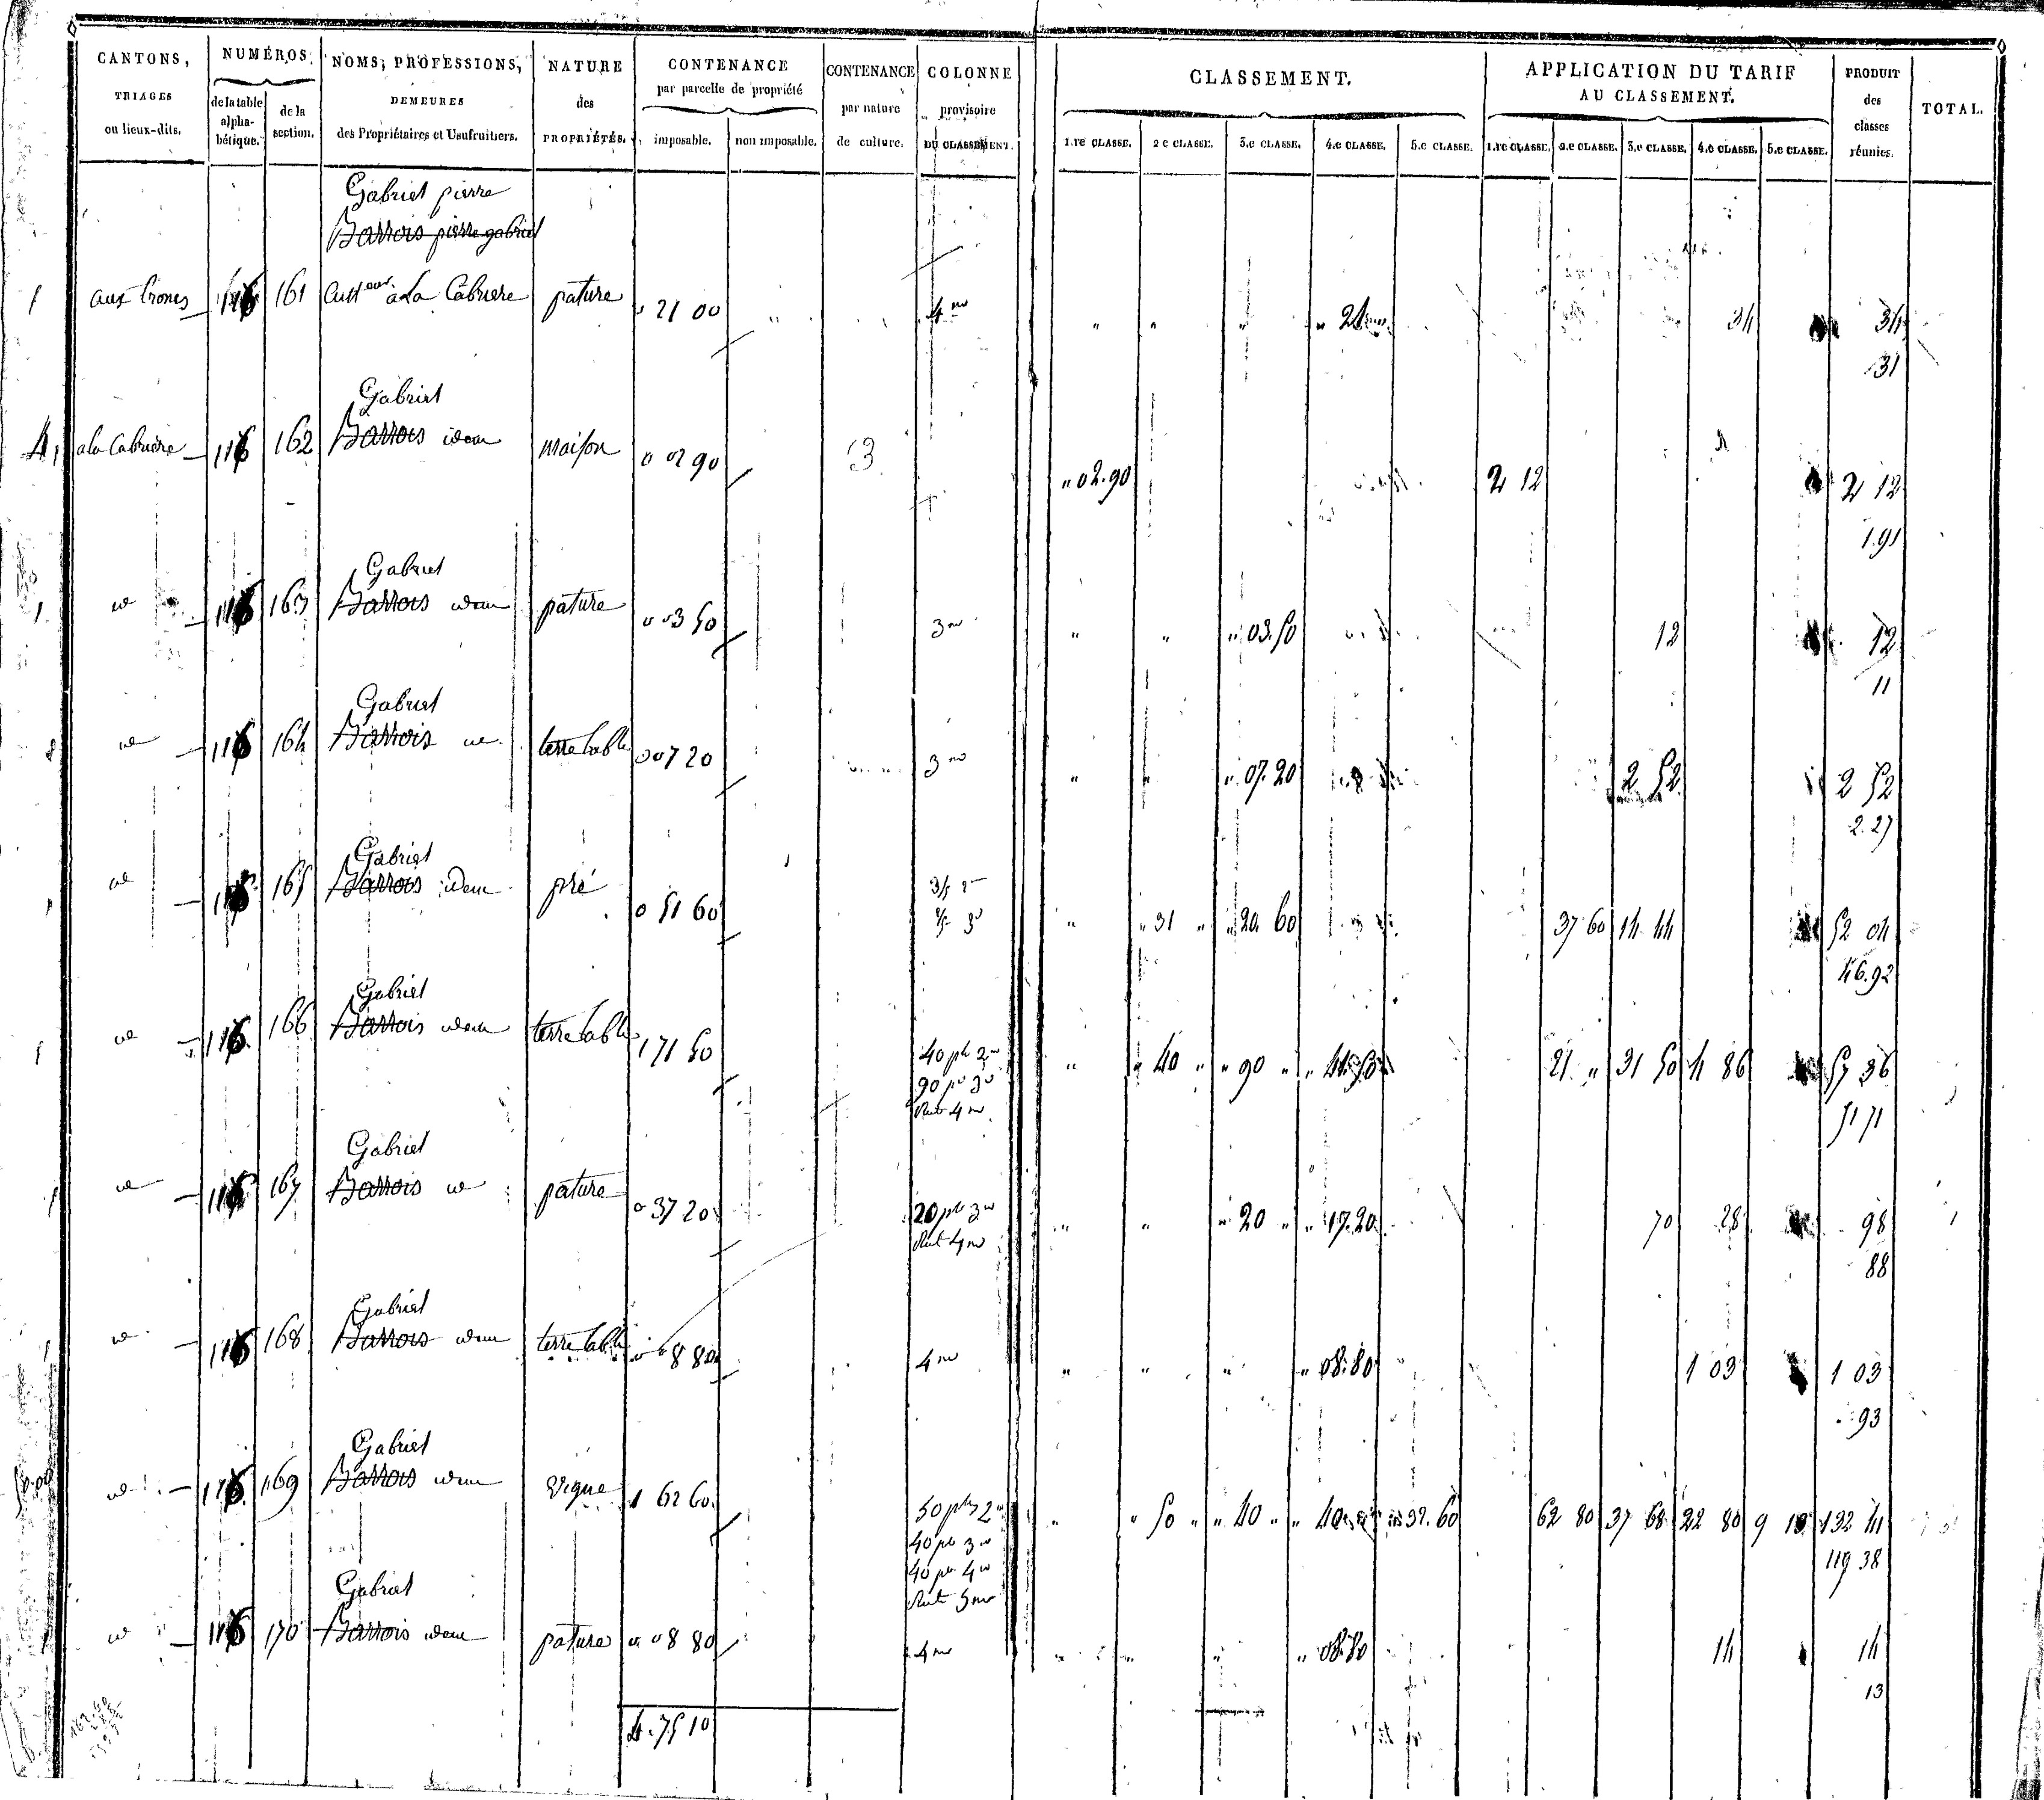 CANTONS, TRIAGES ou lieux-dits. NUMÉROS de la table alphabétique. de la section. NOMS, PROFESSIONS, DEMEURES des Propriétaires et Usufruitiers. NATURE des PROPRIÉTÉS. CONTENANCE par parcelle de propriété imposable. non imposable. CONTENANCE par nature de culture. COLONNE provisoire DU CLASSEMENT. CLASSEMENT. 1.re CLASSE. 2e CLASSE. 3.e CLASSE. 4.e CLASSE. 5.e CLASSE. APPLICATION DU TARIF AU CLASSEMENT. 1.re CLASSE. 2.e CLASSE. 3.e CLASSE. 4.e CLASSE. 5.e CLASSE. PRODUIT des classes réunies. TOTAL.
Gabriel pierre
Barrois pierre gabriel
161 Culteur a la Cabriere pature 21 00 4me 21 34 34
31
Gabriel
a la Cabriere 116 162 Barrois idem maison 0 02 90 3 " 02.90 2 12 2 12
1.91
Gabriel
id 116 163 Barrois idem pature 0 03 50 3me " " " 03.50 12 12
11
Gabriel
id 116 164 Barrois id. terre labl 0 07 20 3me " " " 07.20 2 52 2 52
2.27
Gabriel
id 116 165 Barrois idem pré 0 51 60 3/5 2e 2/5 3e " " 31 " " 20 60 37 60 14 44 52 04
46.92
Gabriel
id 116 166 Barrois idem terre labl 1 71 50 40 pls 2me " " 40 " " 90 " " 41 50 21 " 31 50 4 86 57 36
90 pls 3me 51 71
Rest 4me
Gabriel
id 116 167 Barrois id pature 0 37 20 20 pls 3me " " " 20 " " 17.20 70 28 98
Rest 4me 88
Gabriel
id 116 168 Barrois idem terre labl 0 08 80 4me " " " " 08.80 1 03 1 03
93
Gabriel
id 116 169 Barrois idem vigne 1 62 60 50 pls 2me " " 50 " " 40 " " 40 32.60 62 80 37 68 22 80 9 13 132 41
40 pls 3me 119 38
40 pls 4me
Rest 5me
Gabriel
id 116 170 Barrois idem pature 0 08 80 4me " " " " 08.80 14 14
13
4.75 10